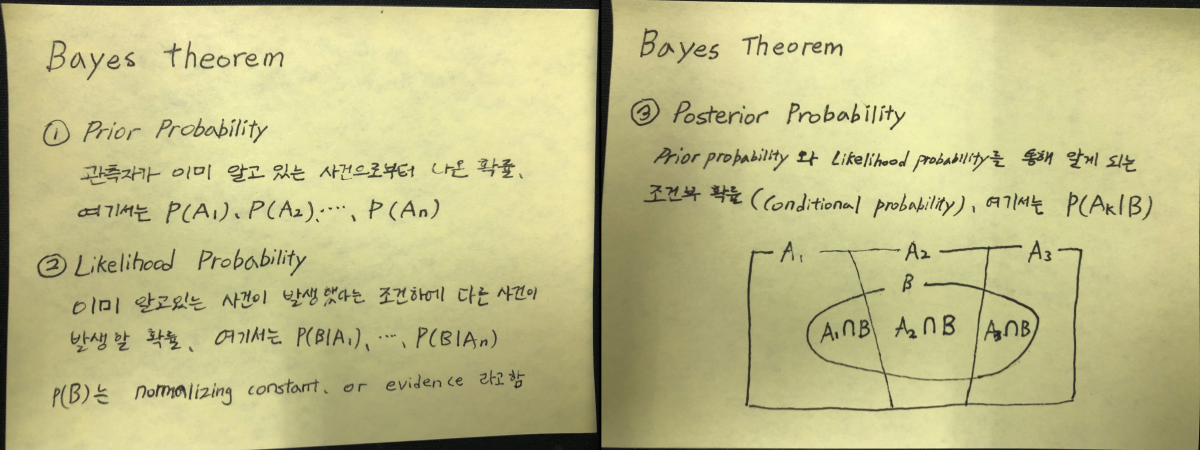 Bayes theorem
① Prior Probability
관측자가 이미 알고 있는 사건으로부터 나온 확률,
여기서는 P(A₁), P(A₂), ⋯, P(Aₙ)
② Likelihood Probability
이미 알고있는 사건이 발생했다는 조건하에 다른 사건이
발생할 확률, 여기서는 P(B|A₁), ⋯, P(B|Aₙ)
P(B)는 normalizing constant, or evidence 라고함
Bayes Theorem
③ Posterior Probability
Prior probability 와 Likelihood probability를 통해 알게 되는
조건부 확률 (Conditional probability), 여기서는 P(Aₖ|B)
A₁ A₂ A₃
B
A₁∩B A₂∩B A₃∩B